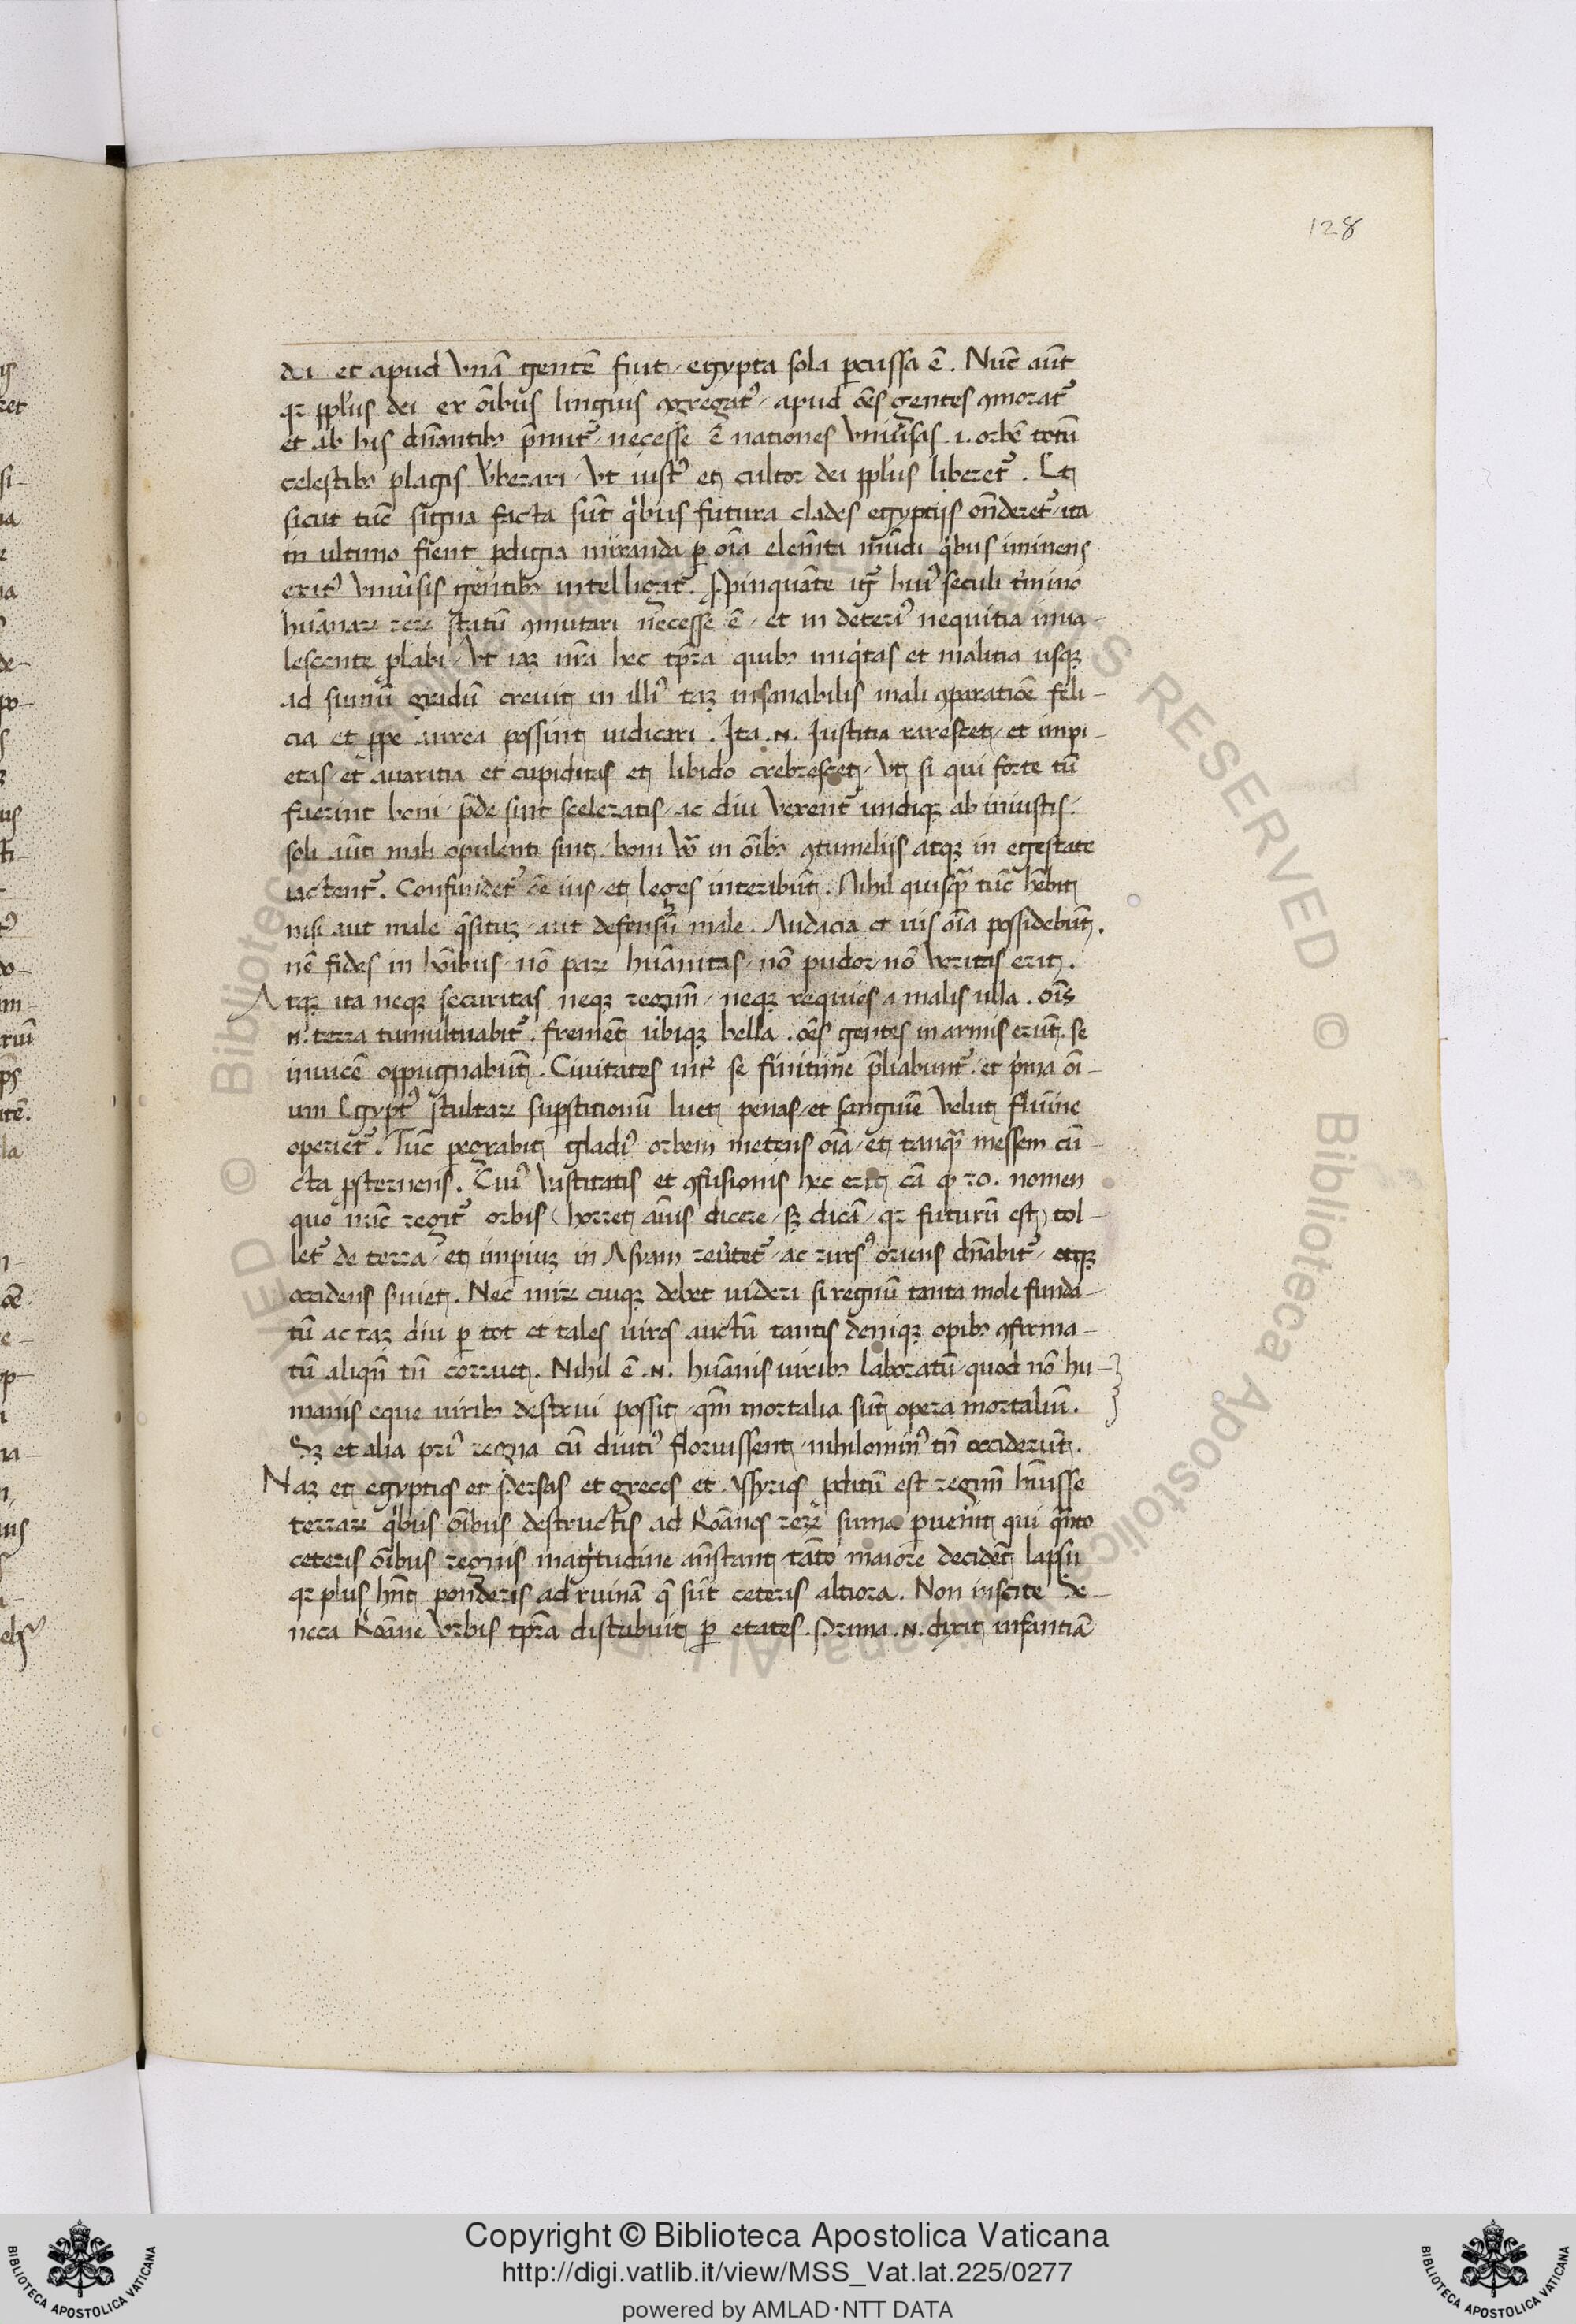 128
dei et apud vnā gentē fiut, egypta sola ꝑcussa ē. Nūc aūt
qꝛ ppl̄us dei ex oībus linguis ꝯgregatꝰ, apud oēs gentes ꝯmorat᷑
et ab his dn̄antibꝫ p̄mit᷑, necesse ē nationes vniu̾sas .i. orbē totū
celestibꝫ plagis v̾berari, vt iustꝰ et cultor dei ppl̄us liberet᷑. Et
sicut tūc signa facta sūt qͥbus futura clades egyptijs on̄deret᷑, ita
in ultimo fient ꝓdigia miranda ꝑ oīa elem̄ta mūdi qͥbus iminens
exitꝰ vniu̾sis gentibꝫ intelligat᷑. Ꝓpinquāte igr̄ huiꝰ seculi t̾mino
huānaꝝ reꝝ statū ꝯmutari necesse ē, et in deteriꝰ nequitia inua-
lescente ꝓlabi, vt iaꝫ nr̄a hec tꝑa quibꝫ iniqͥtas et malitia usqꝫ
ad sumū gradū creuit in illiꝰ taꝫ insanabilis mali ꝯparatiōe feli-
cia et ꝓpe aurea possint iudicari. Ita .n. Iustitia rarescet, et impi-
etas, et auaritia et cupiditas et libido crebrescet, vt si qui forte tū
fuerint boni, p̄de sint sceleratis, ac diu vexent᷑ undiqꝫ ab iniustis.
soli aūt mali opulenti sint, boni vͦ in oībꝫ ꝯtumelijs atqꝫ in egestate
iactent᷑. Confundet᷑ oē ius, et leges interibūt. Nihil quisqͣ tūc hēbit
nisi aut male qͣsituꝫ, aut defensū male. Audacia et uis oīa possidebūt.
nō fides in hoībus, nō pax huānitas, nō pudor, nō veritas erit.
Atqꝫ ita neqꝫ securitas neqꝫ regim̄, neqꝫ requies a malis ulla. oīs
.n. terra tumultuabit᷑. fremēt ubiqꝫ bella. oēs gentes in armis erūt. se
inuicē oppugnabūt. Ciuitates int̾ se finitime p̄liabunt᷑. et pͥma oī-
um Egyptꝰ stultaꝝ suꝑstitionū luet penas, et sanguīe velut flumīe
operiet᷑. Tūc ꝑagrabit gladiꝰ orbem metens oīa, et tanqͣ messem cū-
cta ꝓsternens. Cuiꝰ vastitatis et ꝯfusionis hec erit cā ꝙ ro. nomen
quo nūc regit᷑ orbis (horret aīus dicere, sꝫ dicā, qꝛ futurū est) tol-
let᷑ de terra, et imꝑiuꝫ in Asyam reu̾tet᷑, ac rursꝰ oriens dn̄abit᷑, atqꝫ
occidens s̾uiet. Nec miꝝ cuiqꝫ debet uideri si regnū tanta mole funda-
tū ac taꝫ diu ꝑ tot et tales uiros auctū tantis deniqꝫ opibꝫ ꝯfirma-
tū aliqn̄ tn̄ corruet. Nihil ē .n. huānis uiribꝫ laboratū, quod nō hu-
manis eque uiribꝫ destrui possit, qm̄ mortalia sūt opera mortaliū.
Sꝫ et alia priꝰ regna cū diutiꝰ floruissent, nihilominꝰ tn̄ occiderūt.
Naꝫ et egyptios et Persas et grecos et Assyrios ꝓditū est regim̄ hūisse
terraꝝ qͥbus oībus destructis ad Roānos reꝝ suma ꝑuenit, qui qͣnto
ceteris oībus regnis magͥtudine an̄stant, tāto maiore decidēt lapsu
qꝛ plus hn̄t ponderis ad ruinā qͣ sūt ceteris altiora. Non inscite Se-
neca Roāne vrbis tꝑa distribuit ꝑ etates. Prima .n. dixit infantiā
Copyright © Biblioteca Apostolica Vaticana
http://digi.vatlib.it/view/MSS_Vat.lat.225/0277
powered by AMLAD·NTT DATA